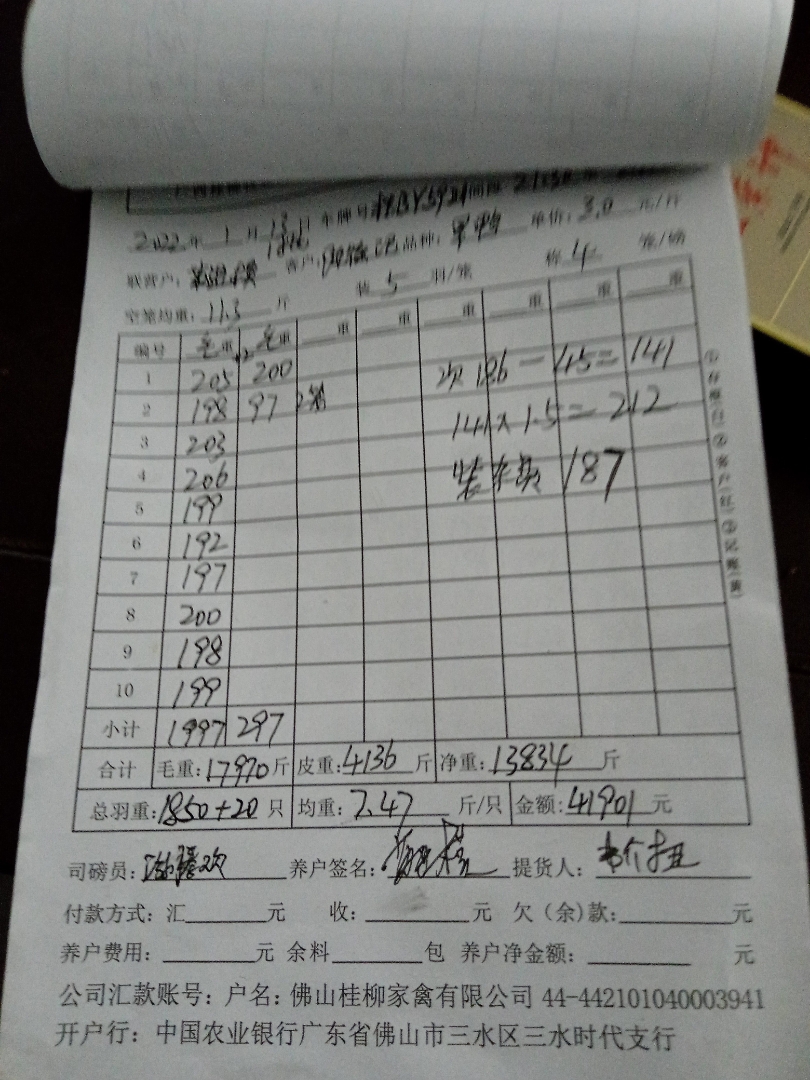 2022年 1月 13日 车牌号 间段
客户: 品种: 单鸭 单价: 3.0 元/斤
联营户: 装 5 羽/笼 称 4 笼/磅
空笼均重: 11.3 斤
编号 毛重 毛重 重 重 重 重 重 重
1 205 200 次 186 - 45 = 141
2 198 97 2笼 141 x 1.5 = 212
3 203
4 206 装车费 187
5 199
6 192
7 197
8 200
9 198
10 199
小计 1997 297
合计 毛重: 17970 斤 皮重: 4136 斤 净重: 13834 斤
总羽重: 1850+20 只 均重: 7.47 斤/只 金额: 41901 元
司磅员: 养户签名: 提货人:
付款方式: 汇 元 收: 元 欠(余)款: 元
养户费用: 元 余料 包 养户净金额: 元
公司汇款账号: 户名: 佛山桂柳家禽有限公司 44-442101040003941
开户行: 中国农业银行广东省佛山市三水区三水时代支行
①存根(白) ②客户(红) ③记账(黄)